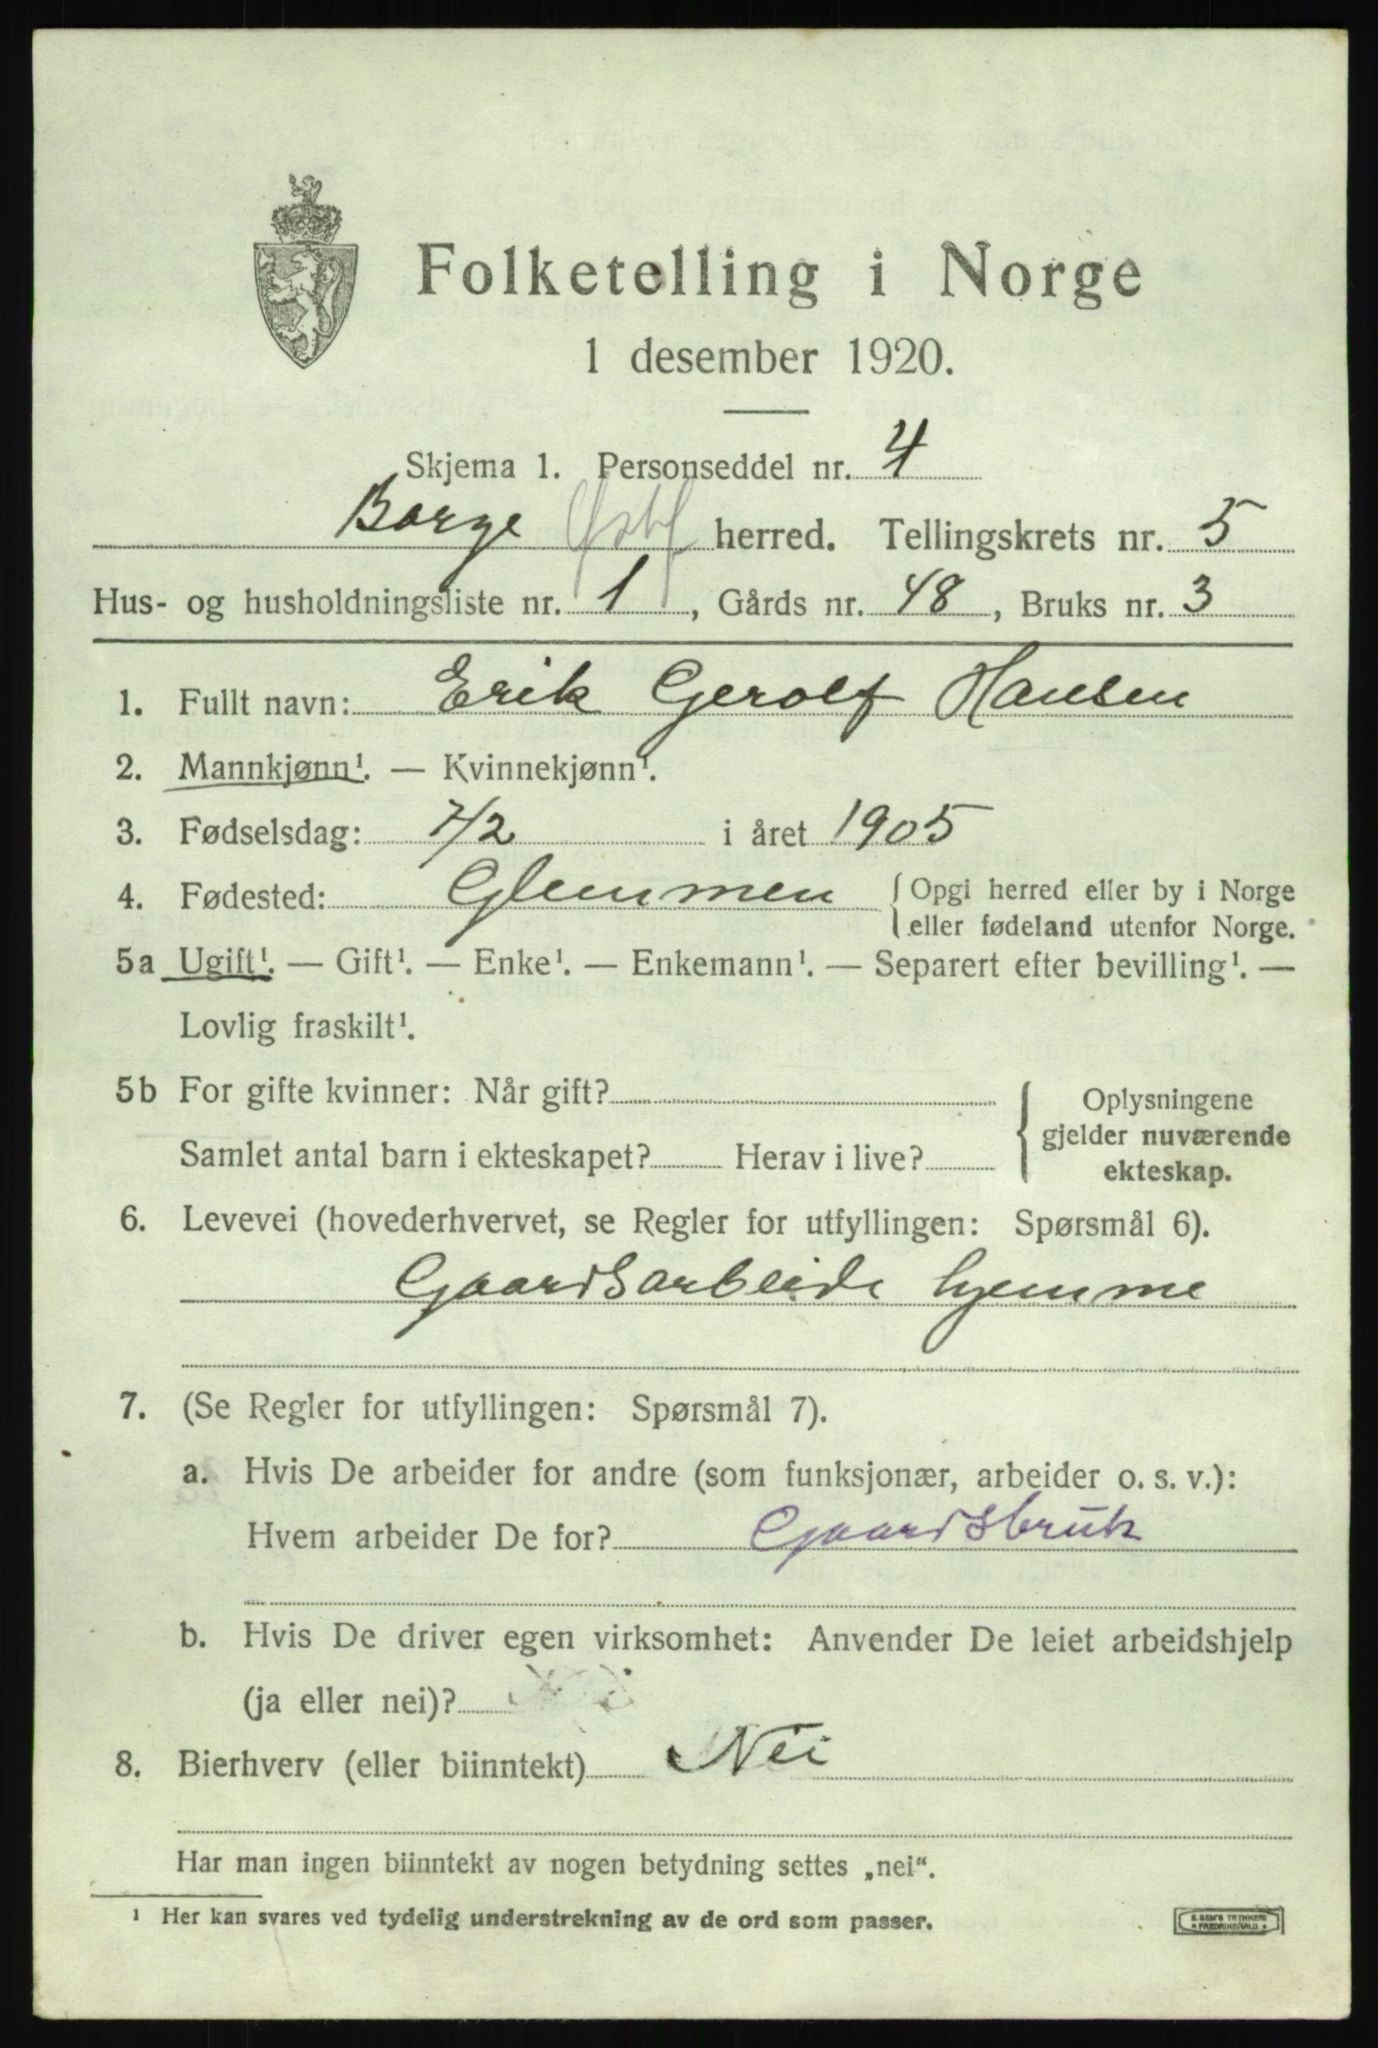 Folketelling i Norge
1 desember 1920.
Skjema 1. Personseddel nr. 4
Borge Østf herred. Tellingskrets nr. 5
Hus- og husholdningsliste nr. 1, Gårds nr. 48, Bruks nr. 3
1. Fullt navn: Erik Gerolf Hansen
2. Mannkjønn¹. — Kvinnekjønn¹.
3. Fødselsdag: 7/2 i året 1905
4. Fødested: Glemmen { Opgi herred eller by i Norge
eller fødeland utenfor Norge.
5a Ugift¹. — Gift¹. — Enke¹. — Enkemann¹. — Separert efter bevilling¹. —
Lovlig fraskilt¹.
5b For gifte kvinner: Når gift? Oplysningene
gjelder nuværende
Samlet antal barn i ekteskapet? Herav i live? ekteskap.
6. Levevei (hovederhvervet, se Regler for utfyllingen: Spørsmål 6).
Gaardsarbeide hjemme
7. (Se Regler for utfyllingen: Spørsmål 7).
a. Hvis De arbeider for andre (som funksjonær, arbeider o. s. v.):
Hvem arbeider De for? Gaardsbruk
b. Hvis De driver egen virksomhet: Anvender De leiet arbeidshjelp
(ja eller nei)?
8. Bierhverv (eller biinntekt) Nei
Har man ingen biinntekt av nogen betydning settes „nei“.
¹ Her kan svares ved tydelig understrekning av de ord som passer.
E. SEM'S TRYKKERI
FREDRIKSHALD